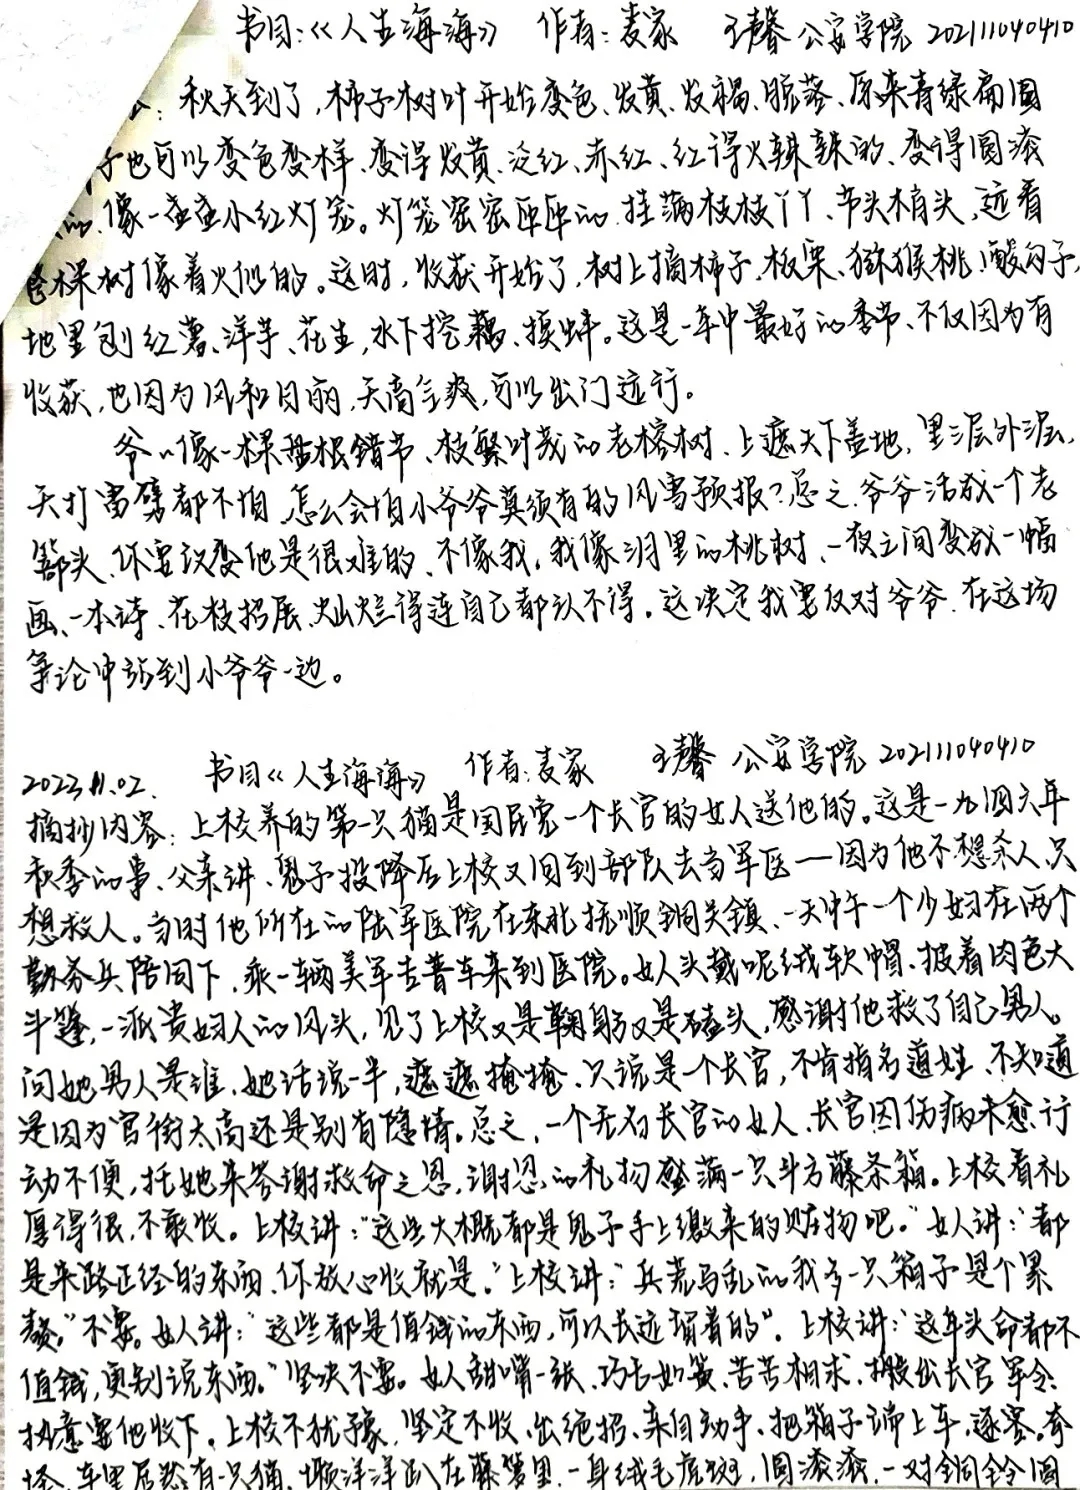 书目:《人生海海》 作者:麦家 王馨 公安学院 202111040410
:秋天到了,柿子树叶开始变色、发黄、发褐、脱落、原来青绿扁圆
子也可以变色变样、变得发黄、泛红、赤红、红得火辣辣的、变得圆滚
的、像一盏盏小红灯笼。灯笼密密匝匝的挂满枝枝丫丫、节头梢头,远看
棵树像着火似的。这时,收获开始了,树上摘柿子、板栗、猕猴桃、酸勾子,
地里刨红薯、洋芋、花生,水下挖藕、摸蚌。这是一年中最好的季节、不仅因为有
收获,也因为风和日丽,天高气爽,可以出门远行。
爷爷像一棵盘根错节、枝繁叶茂的老榕树、上遮天下盖地,里三层外三层,
天打雷劈都不怕,怎么会怕小爷爷莫须有的风雪预报?总之,爷爷活成一个老
箍头、你要改变他是很难的、不像我,我像三月里的桃树、一夜之间变成一幅
画、一本诗、花枝招展、灿烂得连自己都认不得。这决定我要反对爷爷、在这场
争论中站到小爷爷一边。
2023.11.02. 书目《人生海海》 作者:麦家 王馨 公安学院 202111040410
摘抄内容:上校养的第一只猫是国民党一个长官的女人送他的。这是一九四六年
秋季的事、父亲讲、鬼子投降后上校又回到部队去当军医——因为他不想杀人、只
想救人。当时他所在的陆军医院在东北抚顺铜关镇、一天中午一个少妇在两个
勤务兵陪同下,乘一辆美军吉普车来到医院。女人头戴呢绒软帽、披着肉色大
斗篷,一派贵妇人的风头,见了上校又是鞠躬又是磕头,感谢他救了自己男人。
问她男人是谁、她话说一半,遮遮掩掩、只说是一个长官,不肯指名道姓、不知道
是因为官衔太高还是别有隐情。总之,一个无名长官的女人、长官因伤病未愈、行
动不便,托她来答谢救命之恩,谢恩的礼物盛满一只斗方藤条箱。上校看礼
厚得很,不敢收。上校讲:"这些大概都是鬼子手上缴来的赃物吧。"女人讲:"都
是来路正经的东西,你放心收就是。"上校讲:"兵荒马乱的我多一只箱子是个累
赘。"不要。女人讲:"这些都是值钱的东西,可以长远留着的"。上校讲:"这年头命都不
值钱,更别说东西。"坚决不要。女人甜嘴一张、巧舌如簧、苦苦相求、搬出长官军令、
执意要他收下。上校不犹豫,坚定不收、出绝招、亲自动手、把箱子端上车,逐客。奇
怪,车里居然有一只猫,懒洋洋趴在藤篮里,一身绒毛虎斑,圆滚滚,一对铜铃圆